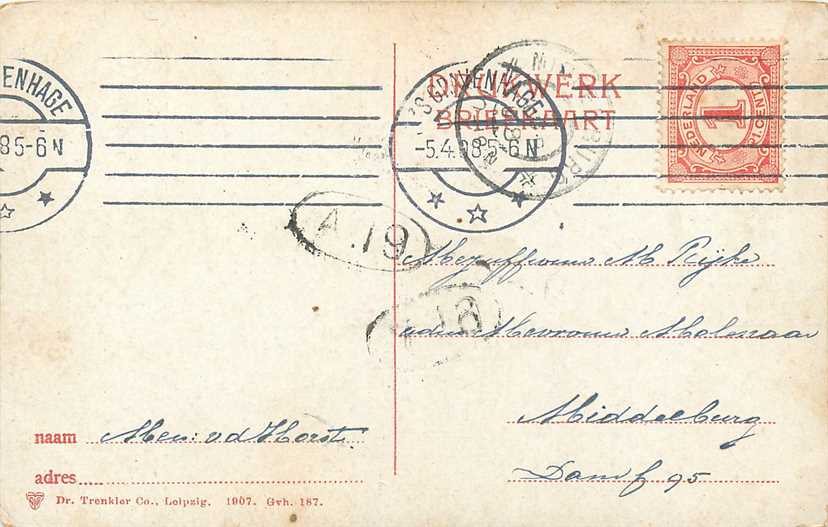 ENHAGE
8 5-6 N
'S GRAVENHAGE
-5.4.08 5-6 N
DRUKWERK
BRIEFKAART
NEDERLAND
1
CENT
A.19
Mejuffrouw M Rijke
adres Mevrouw Molenaar
Middelburg
Dam f 95
naam Men: v d Horst
adres
Dr. Trenkler Co., Leipzig. 1907. Gvh. 187.